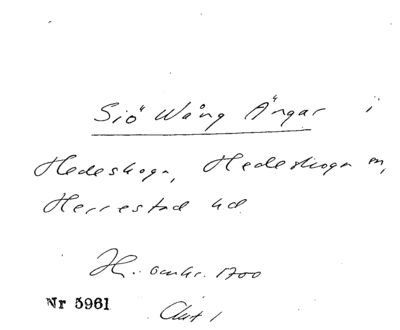 Siö Wång Ängar i
Hedeskoga, Hedeskoga sn,
Herrestad hd
omkr. 1700
Nr 5961
Akt 1